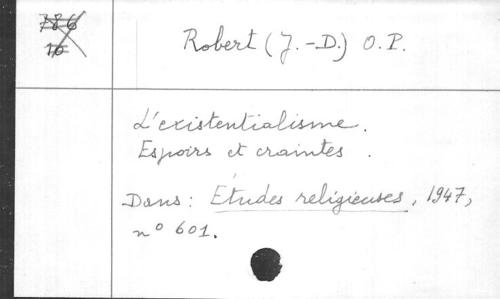 786
10
Robert (J.-D.) O.P.
L'existentialisme.
Espoirs et craintes.
Dans: Études religieuses, 1947,
n° 601.